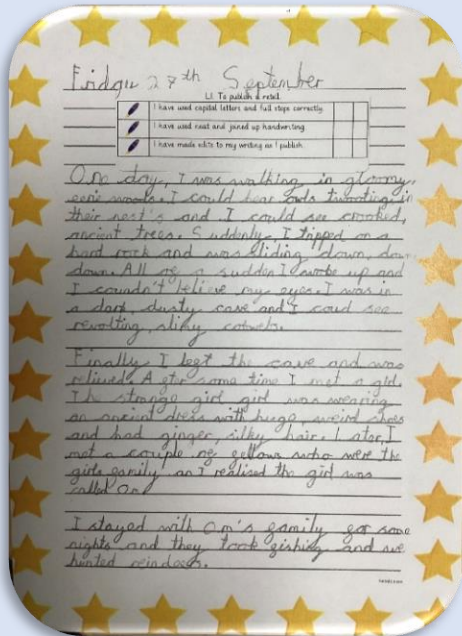 Friday 27th September
L1. To publish a retell.
I have used capital letters and full stops correctly.
I have used neat and joined up handwriting.
I have made edits to my writing as I publish.
One day, I was walking in gloomy,
eerie woods. I could hear owls twooting in
their nest's and I could see crooked,
ancient trees. Suddenly, I tripped on a
hard rock and was sliding down, down
down. All of a sudden I woke up and
I coundn't believe my eyes. I was in
a dark, dusty cave and I coud see
revolting, silky cobwebs.
Finally I left the cave and was
relieved. After some time I met a girl.
The strange girl girl was wearing
an ancient dress with huge, weird shoes
and had ginger, silky hair. Later, I
met a couple of fellows who were the
girls family an I realised the girl was
called Om
I stayed with Om's family for some
nights and they took fishing and we
hunted reindeers.